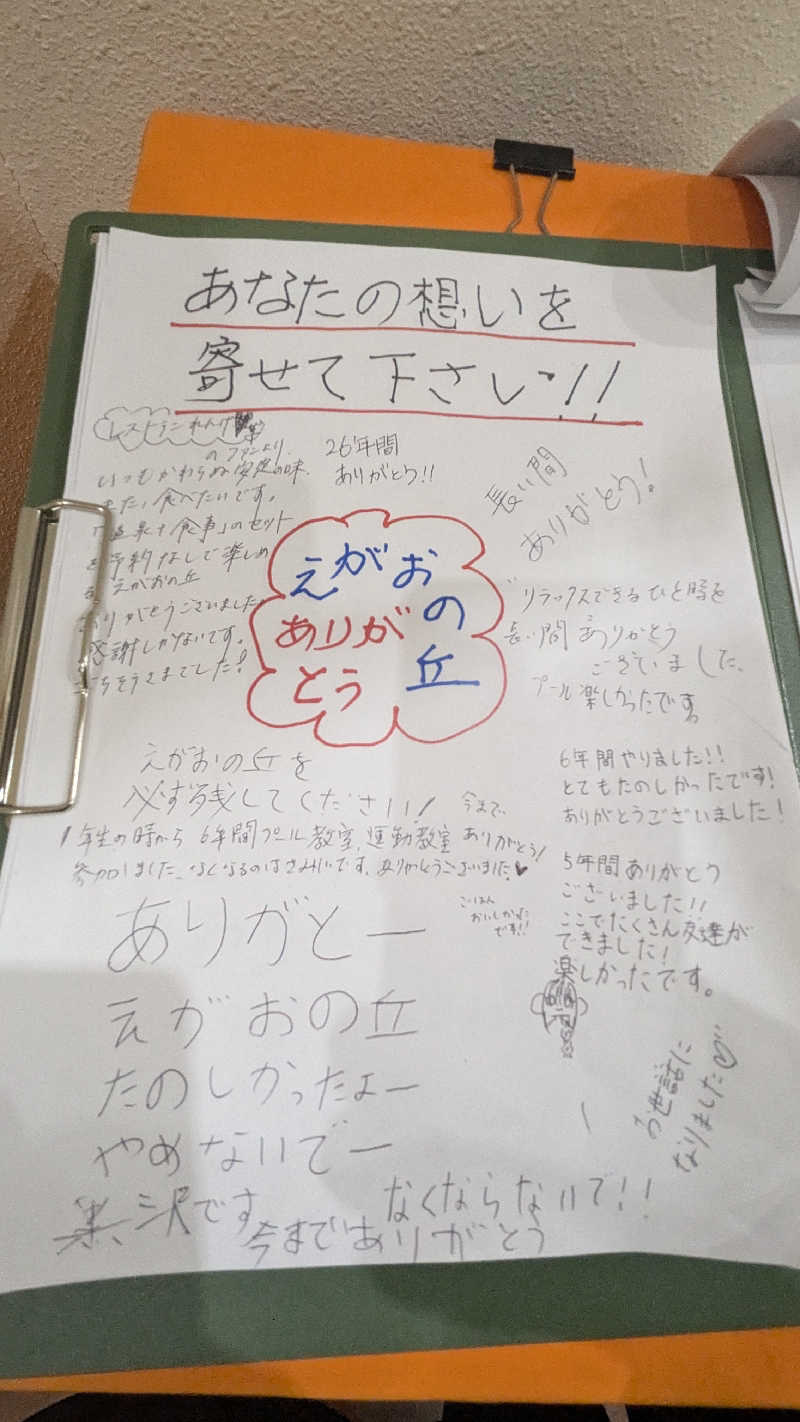 あなたの想いを
寄せて下さい!!
レストランれんげ
のファンより.
いつもかわらぬ安定の味.
また、食べたいです。
「温泉+食事」のセット
を予約なしで楽しめ
る えがおの丘
ありがとうございました
感謝しかないです。
ごちそうさまでした!
26年間
ありがとう!!
長い間
ありがとう!
えがおの丘
ありがとう
リラックスできるひと時を
長い間 ありがとう
ございました、
プール楽しかったです。
えがおの丘を
必ず残してください!
6年間やりました!!
とてもたのしかったです!
ありがとうございました!
1年生の時から 6年間プール教室、運動教室
参加しました、なくなるのはさみしいです、ありがとうございました♥
今まで、
ありがとう!
5年間ありがとう
ございました!!
ここでたくさん友達が
できました!
楽しかったです。
ごはん
おいしかった
です!!
ありがとー
えがおの丘
たのしかったよー
やめないでー
お世話に
なりました♡
なくならないで!!
沢です
今までありがとう